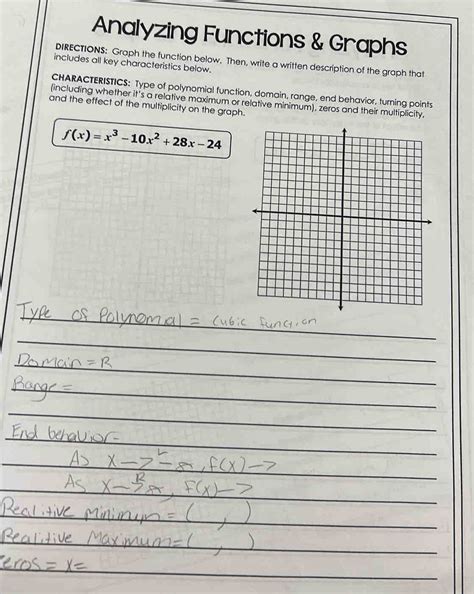 Analyzing Functions & Graphs
DIRECTIONS: Graph the function below. Then, write a written description of the graph that
includes all key characteristics below.
CHARACTERISTICS: Type of polynomial function, domain, range, end behavior, turning points
(including whether it's a relative maximum or relative minimum), zeros and their multiplicity,
and the effect of the multiplicity on the graph.
f(x) = x³ − 10x² + 28x − 24
Type of Polynomial = cubic function
Domain = R
Range =
End behavior-
As x → -∞, f(x) →
As x → ∞, f(x) →
Realitive Minimum = ( , )
Realitive Maximum = ( , )
zeros = x =